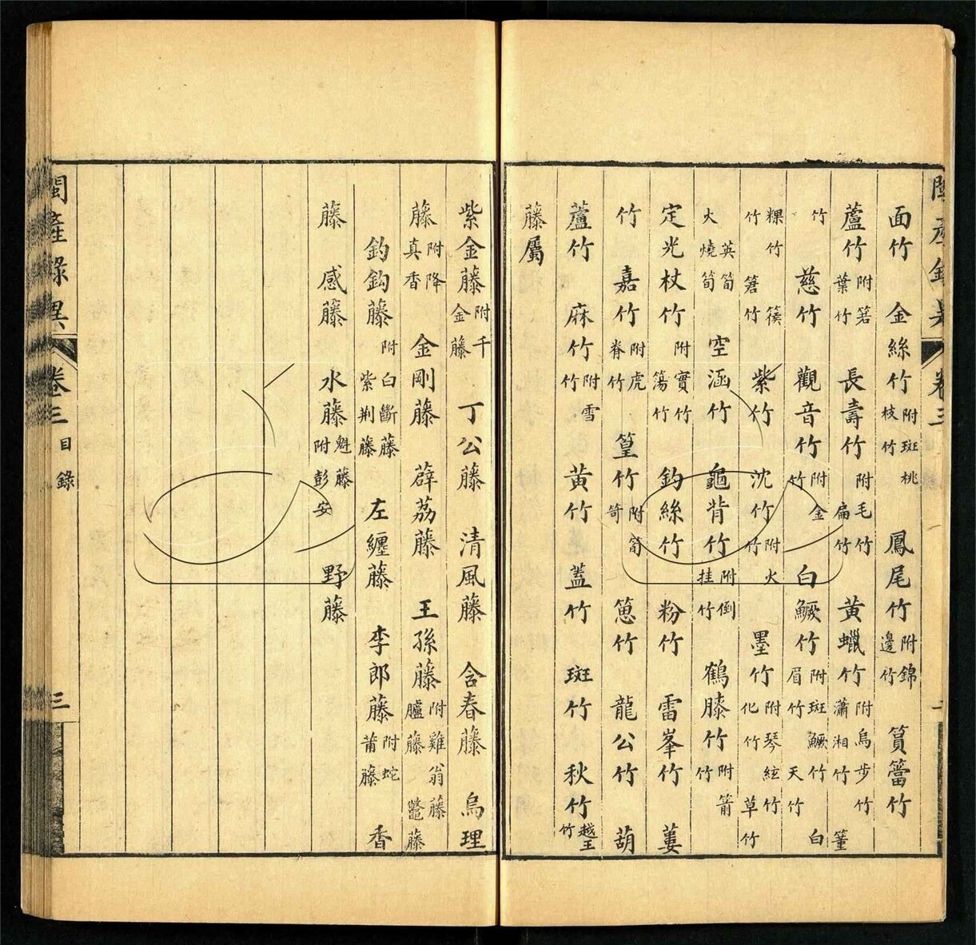 面竹 金絲竹 附斑桃枝竹 鳳尾竹 附錦邊竹 篔簹竹
蘆竹 附箬葉竹 長壽竹 附毛竹扁竹 黃蠟竹 附烏步竹瀟湘竹 箽
竹 慈竹 觀音竹 附金竹 白鱖竹 附斑鱖竹白眉竹天竹
粿竹篌竹箬竹 紫竹 沈竹 附火竹 墨竹 附琴絃竹化竹草竹
英筍火燒筍 空涵竹 龜背竹 附倒挂竹 鶴膝竹 附箭竹
定光杖竹 附實竹簜竹 鈎絲竹 粉竹 雷峯竹 蔞
竹 嘉竹 附虎脊竹 篁竹 附 竹 龍公竹 葫
蘆竹 麻竹 附雪竹 黃竹 蓋竹 斑竹 秋竹 越王竹
藤屬
紫金藤 附千金藤 丁公藤 清風藤 含春藤 烏理
藤 附降真香 金剛藤 薜荔藤 王孫藤 附雞翁藤臚藤鼈藤
鈎鈎藤 附白斷藤紫荆藤 左纏藤 李郎藤 附蛇莆藤 香
藤 感藤 水藤 魁藤附彭安 野藤
閩產錄異 卷三 目錄 三